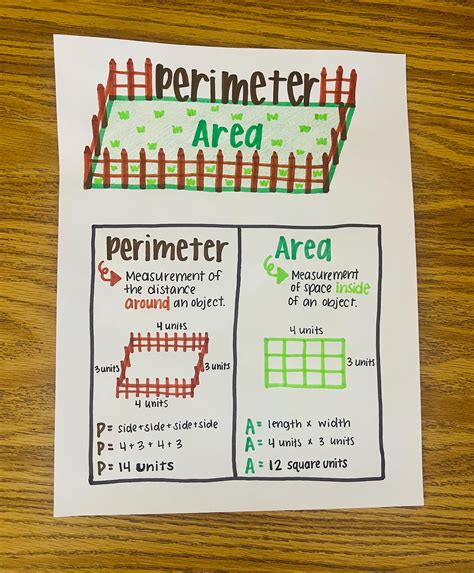 Perimeter
Area
Perimeter
Measurement of
the distance
around an object.
4 units
3 units
3 units
4 units
P= side+side+side+side
P= 4+3+4+3
P= 14 units
Area
Measurement
of space inside
of an object.
4 units
3 units
A= length x width
A= 4 units x 3 units
A= 12 square units